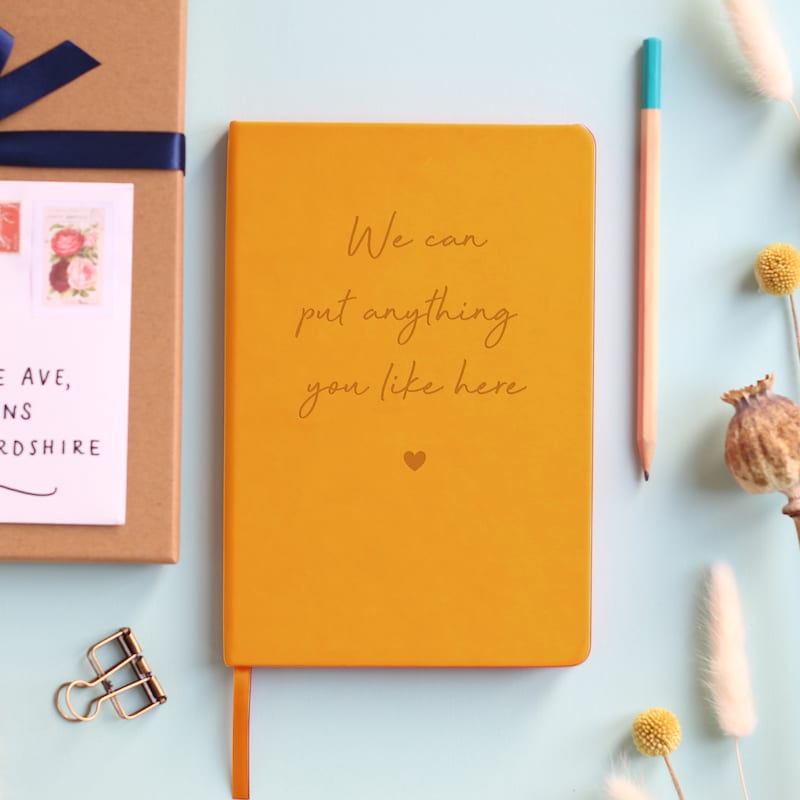 We can
put anything
you like here
E AVE,
NS
RDSHIRE